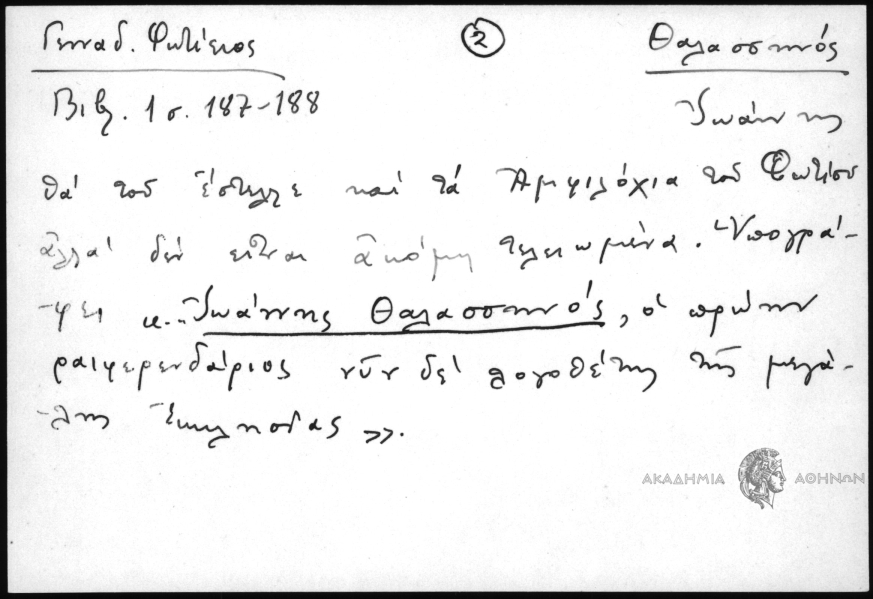 Γενναδ. Φωτίειος ② Θαλασσηνός
Βιβλ. 1 σ. 187-188 Ἰωάννης
θά τοῦ ἔστελλε καί τά Ἀμφιλόχια τοῦ Φωτίου
ἀλλά δέν εἶναι ἀκόμη τελειωμένα. Ὑπογρά-
-φει κ. Ἰωάννης Θαλασσηνός, ὁ πρώην
ραιφερενδάριος νῦν δέ λογοθέτης τῆς μεγά-
-λης Ἐκκλησίας».
ΑΚΑΔΗΜΙΑ ΑΘΗΝΩΝ